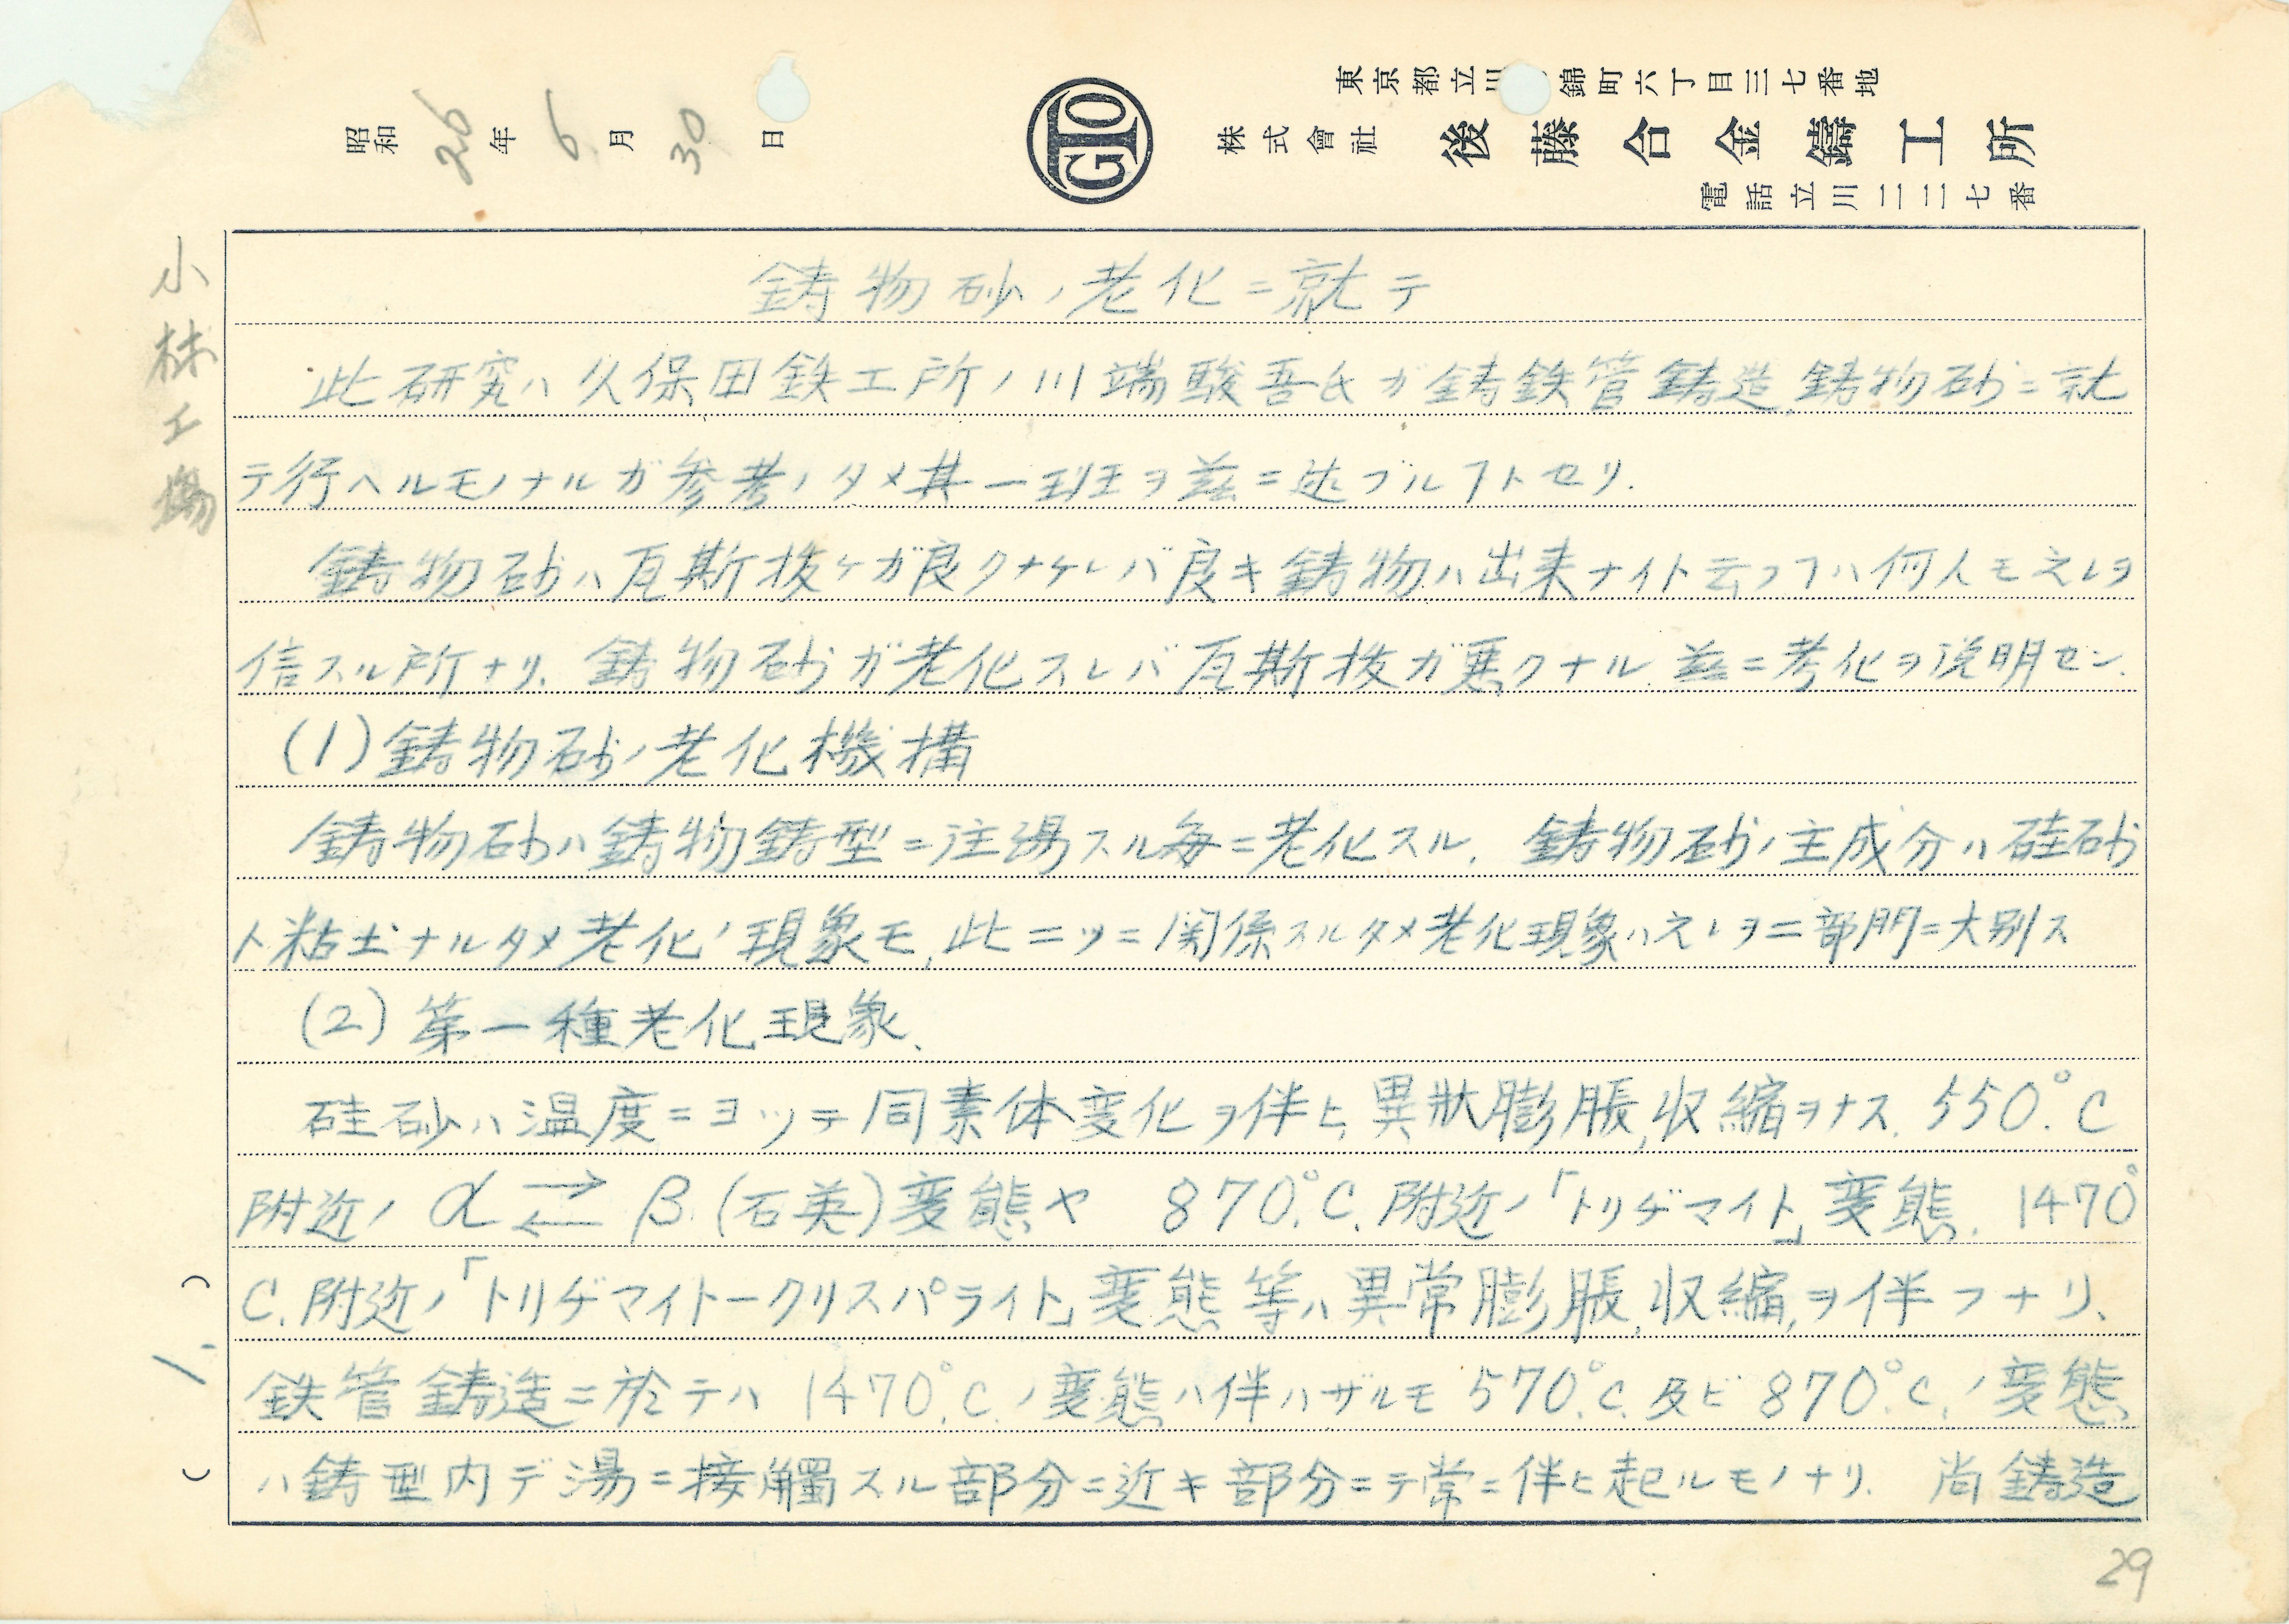 東京都立川 錦町六丁目三七番地
株式會社 後藤合金鑄工所
電話立川二二七番
GTO
昭和26年6月30日
小林工場
鋳物砂ノ老化ニ就テ
此研究ハ久保田鉄工所ノ川端駿吾氏ガ鋳鉄管鋳造鋳物砂ニ就
テ行ヘルモノナルガ参考ノタメ其一班ヲ茲ニ述ブルヿトセリ.
鋳物砂ハ瓦斯抜ケガ良クナケレバ良キ鋳物ハ出来ナイト云フヿハ何人モ之レヲ
信スル所ナリ. 鋳物砂ガ老化スレバ瓦斯抜ガ悪クナル. 茲ニ考化ヲ説明セン.
(1)鋳物砂ノ老化機構
鋳物砂ハ鋳物鋳型ニ注湯スル毎ニ老化スル. 鋳物砂ノ主成分ハ硅砂
ト粘土ナルタメ老化ノ現象モ,此ニツニ関係スルタメ老化現象ハ之レヲ二部門ニ大別ス
(2)第一種老化現象、
硅砂ハ温度ニヨッテ同素体変化ヲ伴ヒ,異状膨脹,収縮ヲナス. 550°.C
附近ノ α⇄β.(石英)変態ヤ 870°.C.附近ノ「トリヂマイト」変態. 1470°
C.附近ノ「トリヂマイトークリスパライト」変態等ハ異常膨脹,収縮,ヲ伴フナリ、
鉄管鋳造ニ於テハ 1470°.C.ノ変態ハ伴ハザルモ 570°.C.及ビ 870°.C.ノ変態
ハ鋳型内デ湯ニ接觸スル部分ニ近キ部分ニテ常ニ伴ヒ起ルモノナリ. 尚鋳造
( 1. )
29